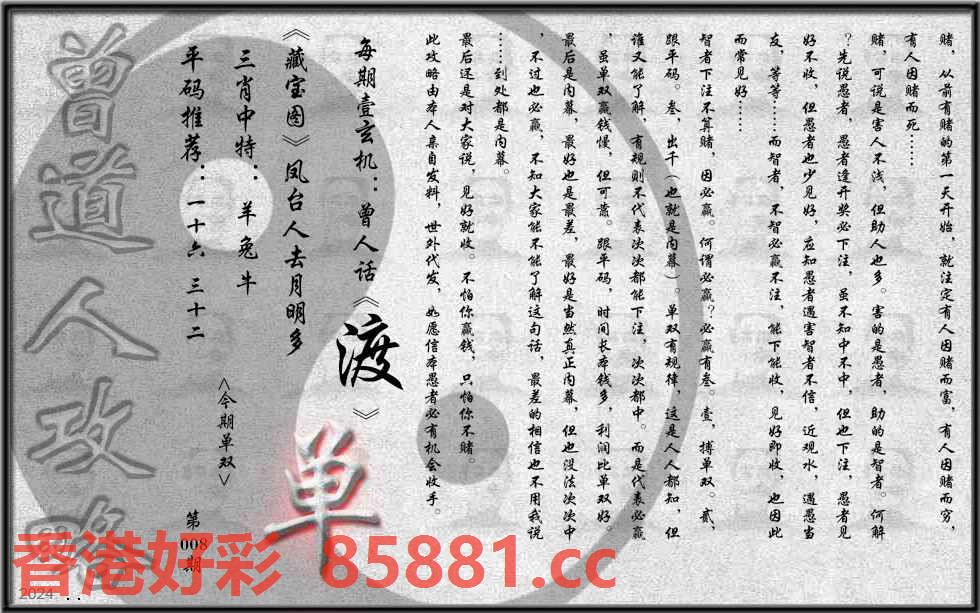 赌，从前有赌的第一天开始，就注定有人因赌而富，有人因赌而穷，
有人因赌而死……
赌，可说是害人不浅，但助人也多。害的是愚者，助的是智者。何解
？先说愚者，愚者逢开奖必下注，虽不知中不中，但也下注，愚者见
好不收，但愚者也少见好，应知愚者遇害智者不信，近观水，遇愚当
友，等等……而智者，不智必赢不注，能下能收，见好即收，也因此
而常见好……
智者下注不算赌，因必赢。何谓必赢？必赢有叁。壹，搏单双。贰，
跟平码。叁，出千（也就是内幕）。单双有规律，这是人人都知，但
谁又能了解，有规则不代表次次都能下注，次次都中。而是代表必赢
，虽单双赢钱慢，但可靠。跟平码，时间长本钱多，利润比单双好。
最后是内幕，最好也是最差，最好是当然真正内幕，但也没法次次中
，不过也必赢，不知大家能不能了解这句话，最差的相信也不用我说
……到处都是内幕。
最后还是对大家说，见好就收。不怕你赢钱，只怕你不赌。
此攻略由本人亲自发料，世外代发，如愿信本愚者必有机会收手。
每期壹玄机：曾人话《渡》
《藏宝图》凤台人去月明多
三肖中特：羊兔牛
平码推荐：一十六 三十二
<今期单双>
单
第008期
曾道人攻略
香港好彩 85881.cc
2024